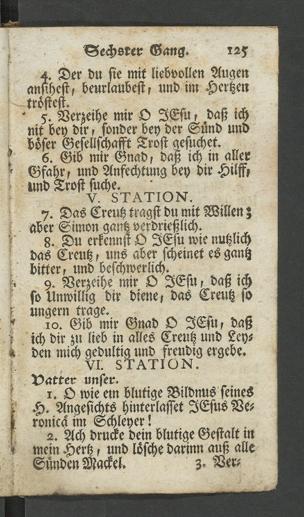 Sechster Gang. 125
4. Der du sie mit liebvollen Augen
ansihest, beurlaubest, und im Hertzen
tröstest.
5. Verzeihe mir O JEsu, daß ich
nit bey dir, sonder bey der Sünd und
böser Gesellschafft Trost gesuchet.
6. Gib mir Gnad, daß ich in aller
Gfahr, und Anfechtung bey dir Hilff,
und Trost suche.
V. STATION.
7. Das Creutz tragst du mit Willen;
aber Simon gantz verdrießlich.
8. Du erkennst O JEsu wie nutzlich
das Creutz, uns aber scheinet es gantz
bitter, und beschwerlich.
9. Verzeihe mir O JEsu, daß ich
so Unwillig dir diene, das Creutz so
ungern trage.
10. Gib mir Gnad O JEsu, daß
ich dir zu lieb in alles Creutz und Ley-
den mich gedultig und freudig ergebe.
VI. STATION.
Vatter unser.
1. O wie ein blutige Bildnus seines
H. Angesichts hinterlasset JEsus Ve-
ronica im Schleyer!
2. Ach drucke dein blutige Gestalt in
mein Hertz, und lösche darinn auß alle
Sünden Mackel. 3. Ver-